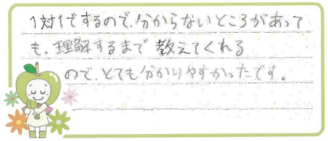 1対1でするので、分からないところがあって
も、理解するまで教えてくれる
ので、とても分かりやすかったです。